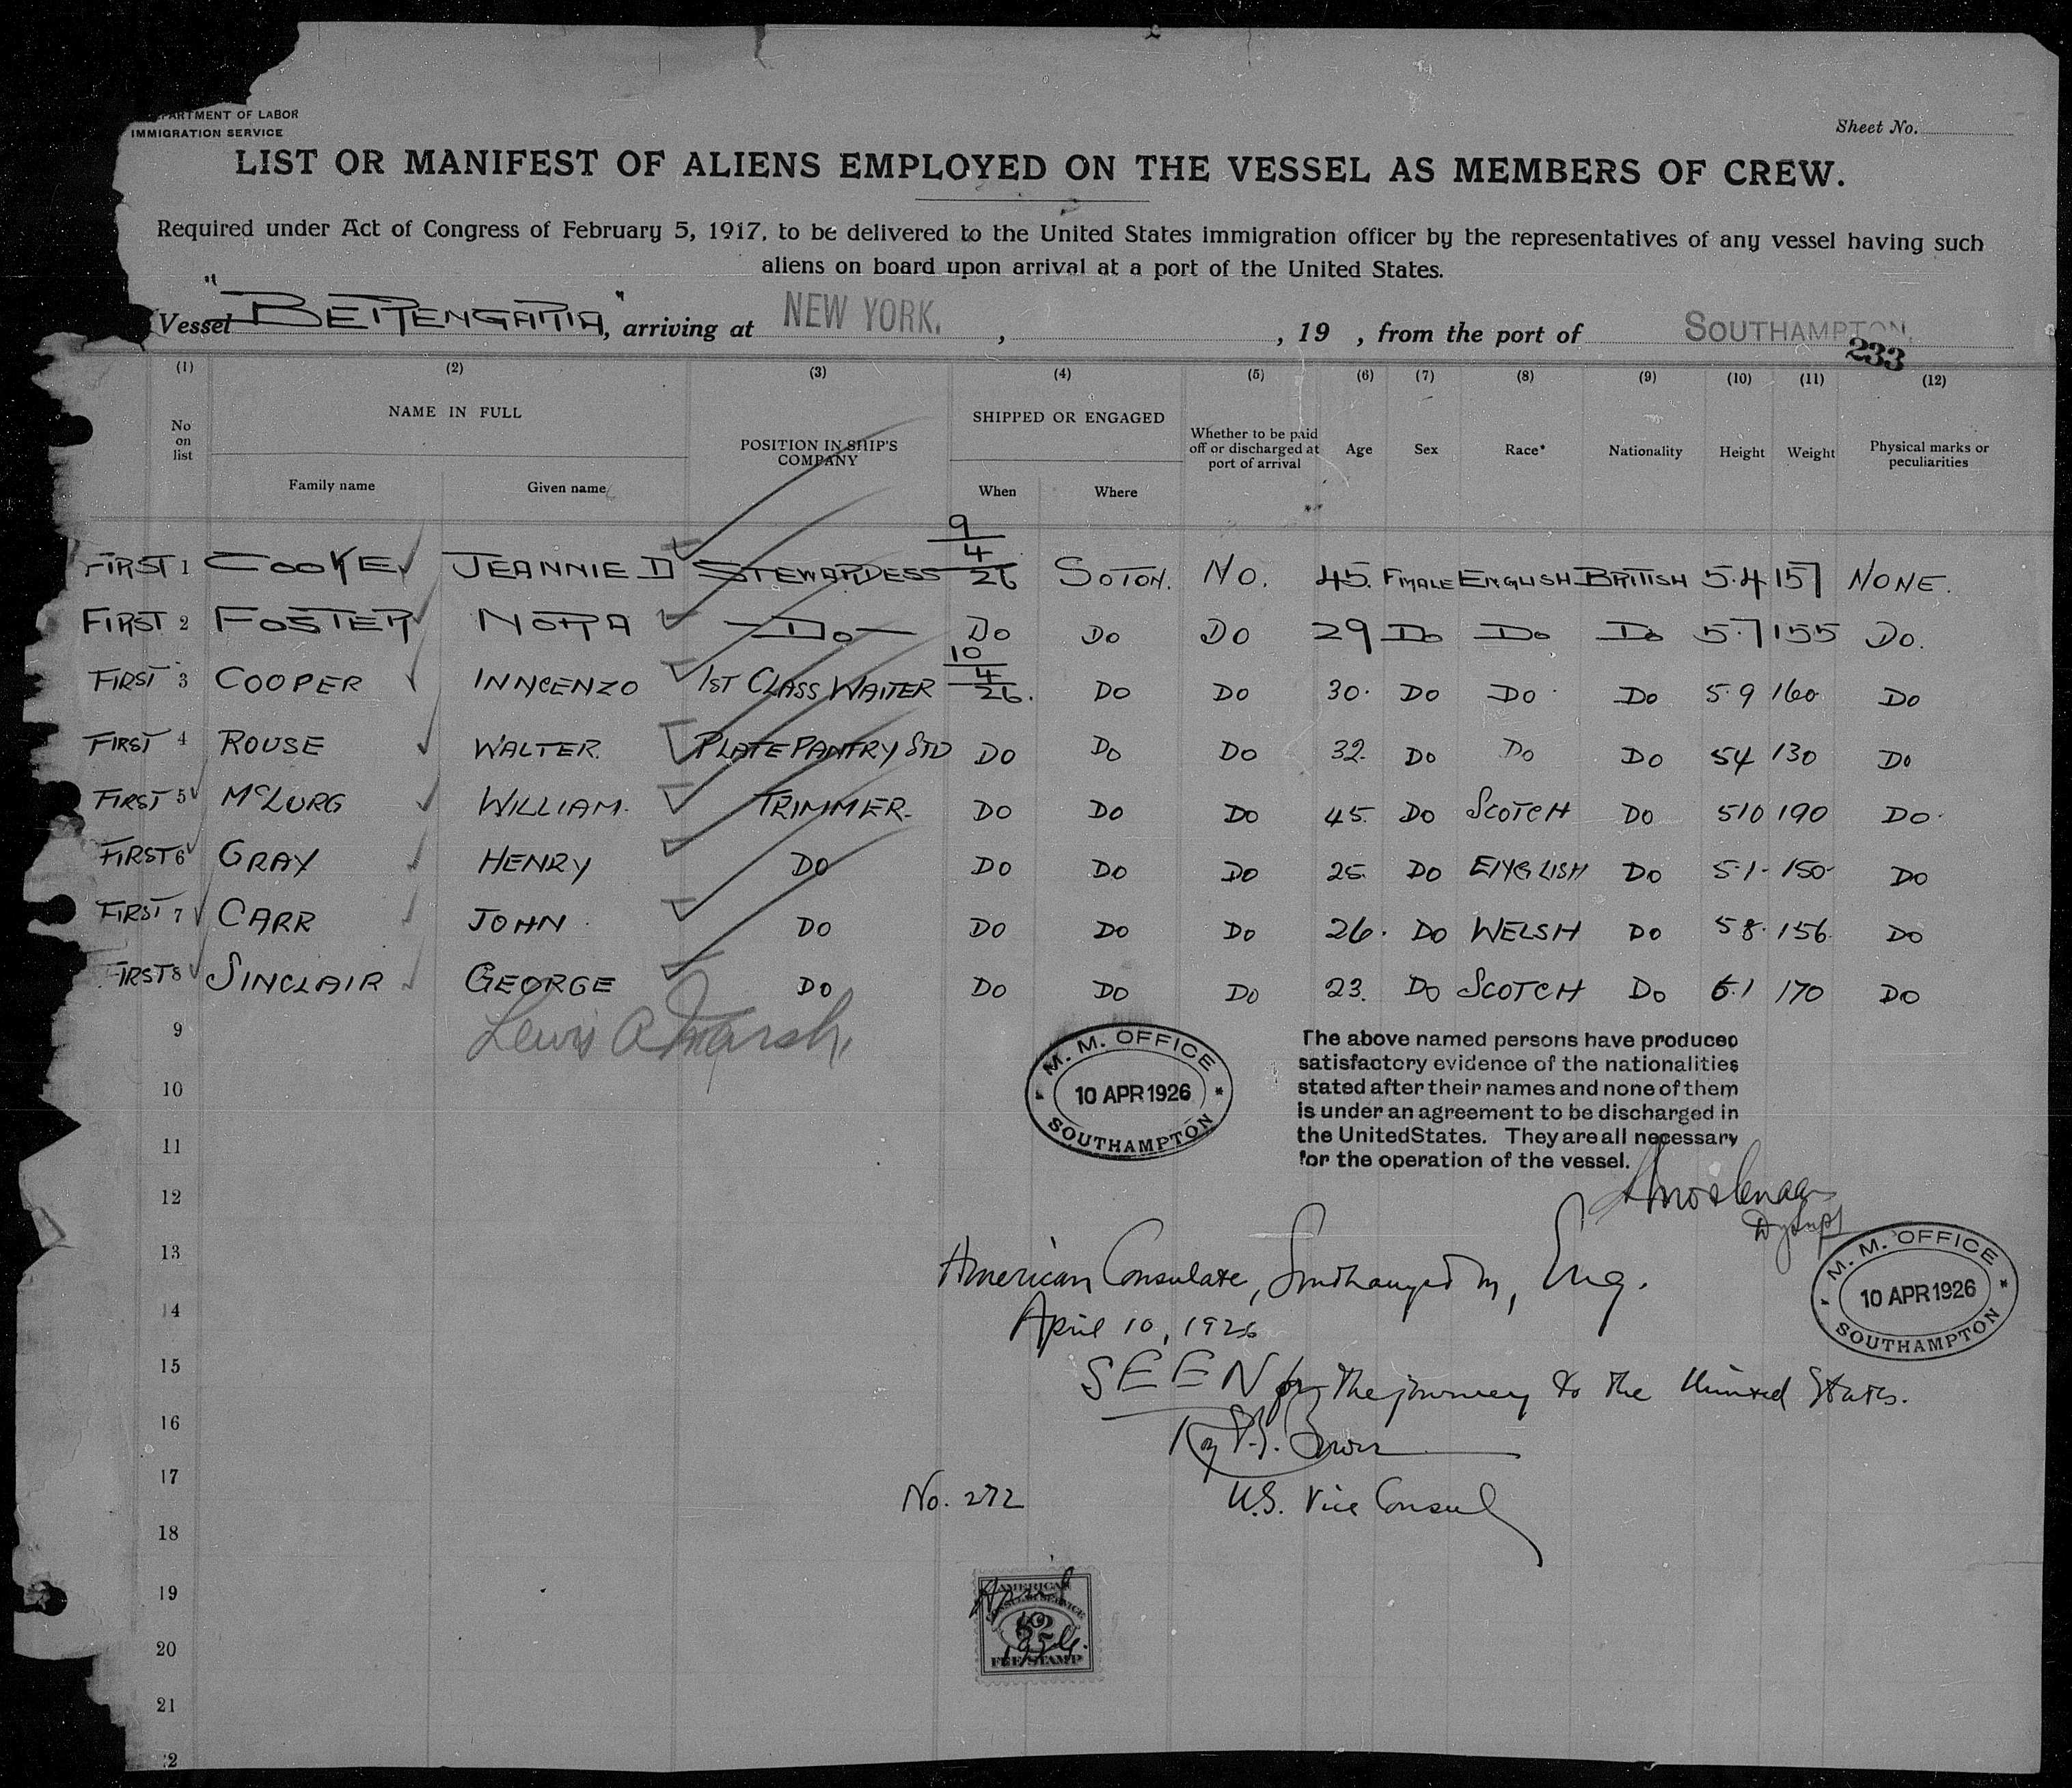 PARTMENT OF LABOR
IMMIGRATION SERVICE
Sheet No.
LIST OR MANIFEST OF ALIENS EMPLOYED ON THE VESSEL AS MEMBERS OF CREW.
Required under Act of Congress of February 5, 1917, to be delivered to the United States immigration officer by the representatives of any vessel having such
aliens on board upon arrival at a port of the United States.
Vessel "BERENGARIA", arriving at NEW YORK. , , 19 , from the port of SOUTHAMPTON.
233
(1) (2) (3) (4) (5) (6) (7) (8) (9) (10) (11) (12)
No on list NAME IN FULL Family name Given name POSITION IN SHIP'S COMPANY SHIPPED OR ENGAGED When Where Whether to be paid off or discharged at port of arrival Age Sex Race* Nationality Height Weight Physical marks or peculiarities
FIRST 1 COOKE JEANNIE D STEWARDESS 9/4/26 SOTON. NO. 45. FMALE ENGLISH BRITISH 5.4 157 NONE.
FIRST 2 FOSTER NORA Do Do Do Do 29 Do Do Do 5.7 155 Do.
FIRST 3 COOPER INNCENZO 1ST CLASS WAITER 10/4/26. DO DO 30. DO DO Do 5.9 160 Do
FIRST 4 ROUSE WALTER. PLATE PANTRY STD DO Do Do 32. Do Do Do 54 130 Do
FIRST 5 McLURG WILLIAM. TRIMMER. DO Do Do 45. Do SCOTCH DO 510 190 Do.
FIRST 6 GRAY HENRY DO DO DO DO 25. DO ENGLISH DO 5.1. 150 DO
FIRST 7 CARR JOHN DO DO DO DO 26. DO WELSH DO 58. 156. DO
FIRST 8 SINCLAIR GEORGE DO DO DO DO 23. DO SCOTCH DO 6.1 170 DO
Lewis A Marsh,
9
10
11
12
13
14
15
16
17
18
19
20
21
2
M. M. OFFICE
10 APR 1926
SOUTHAMPTON
The above named persons have produced
satisfactory evidence of the nationalities
stated after their names and none of them
is under an agreement to be discharged in
the United States. They are all necessary
for the operation of the vessel.
M. M. OFFICE
10 APR 1926
SOUTHAMPTON
American Consulate, Southampton, Eng.
April 10, 1926
SEEN for the journey to the United States.
U.S. Vice Consul
No. 272
AMERICAN
CONSULAR SERVICE
FEE STAMP
April
10
1926.